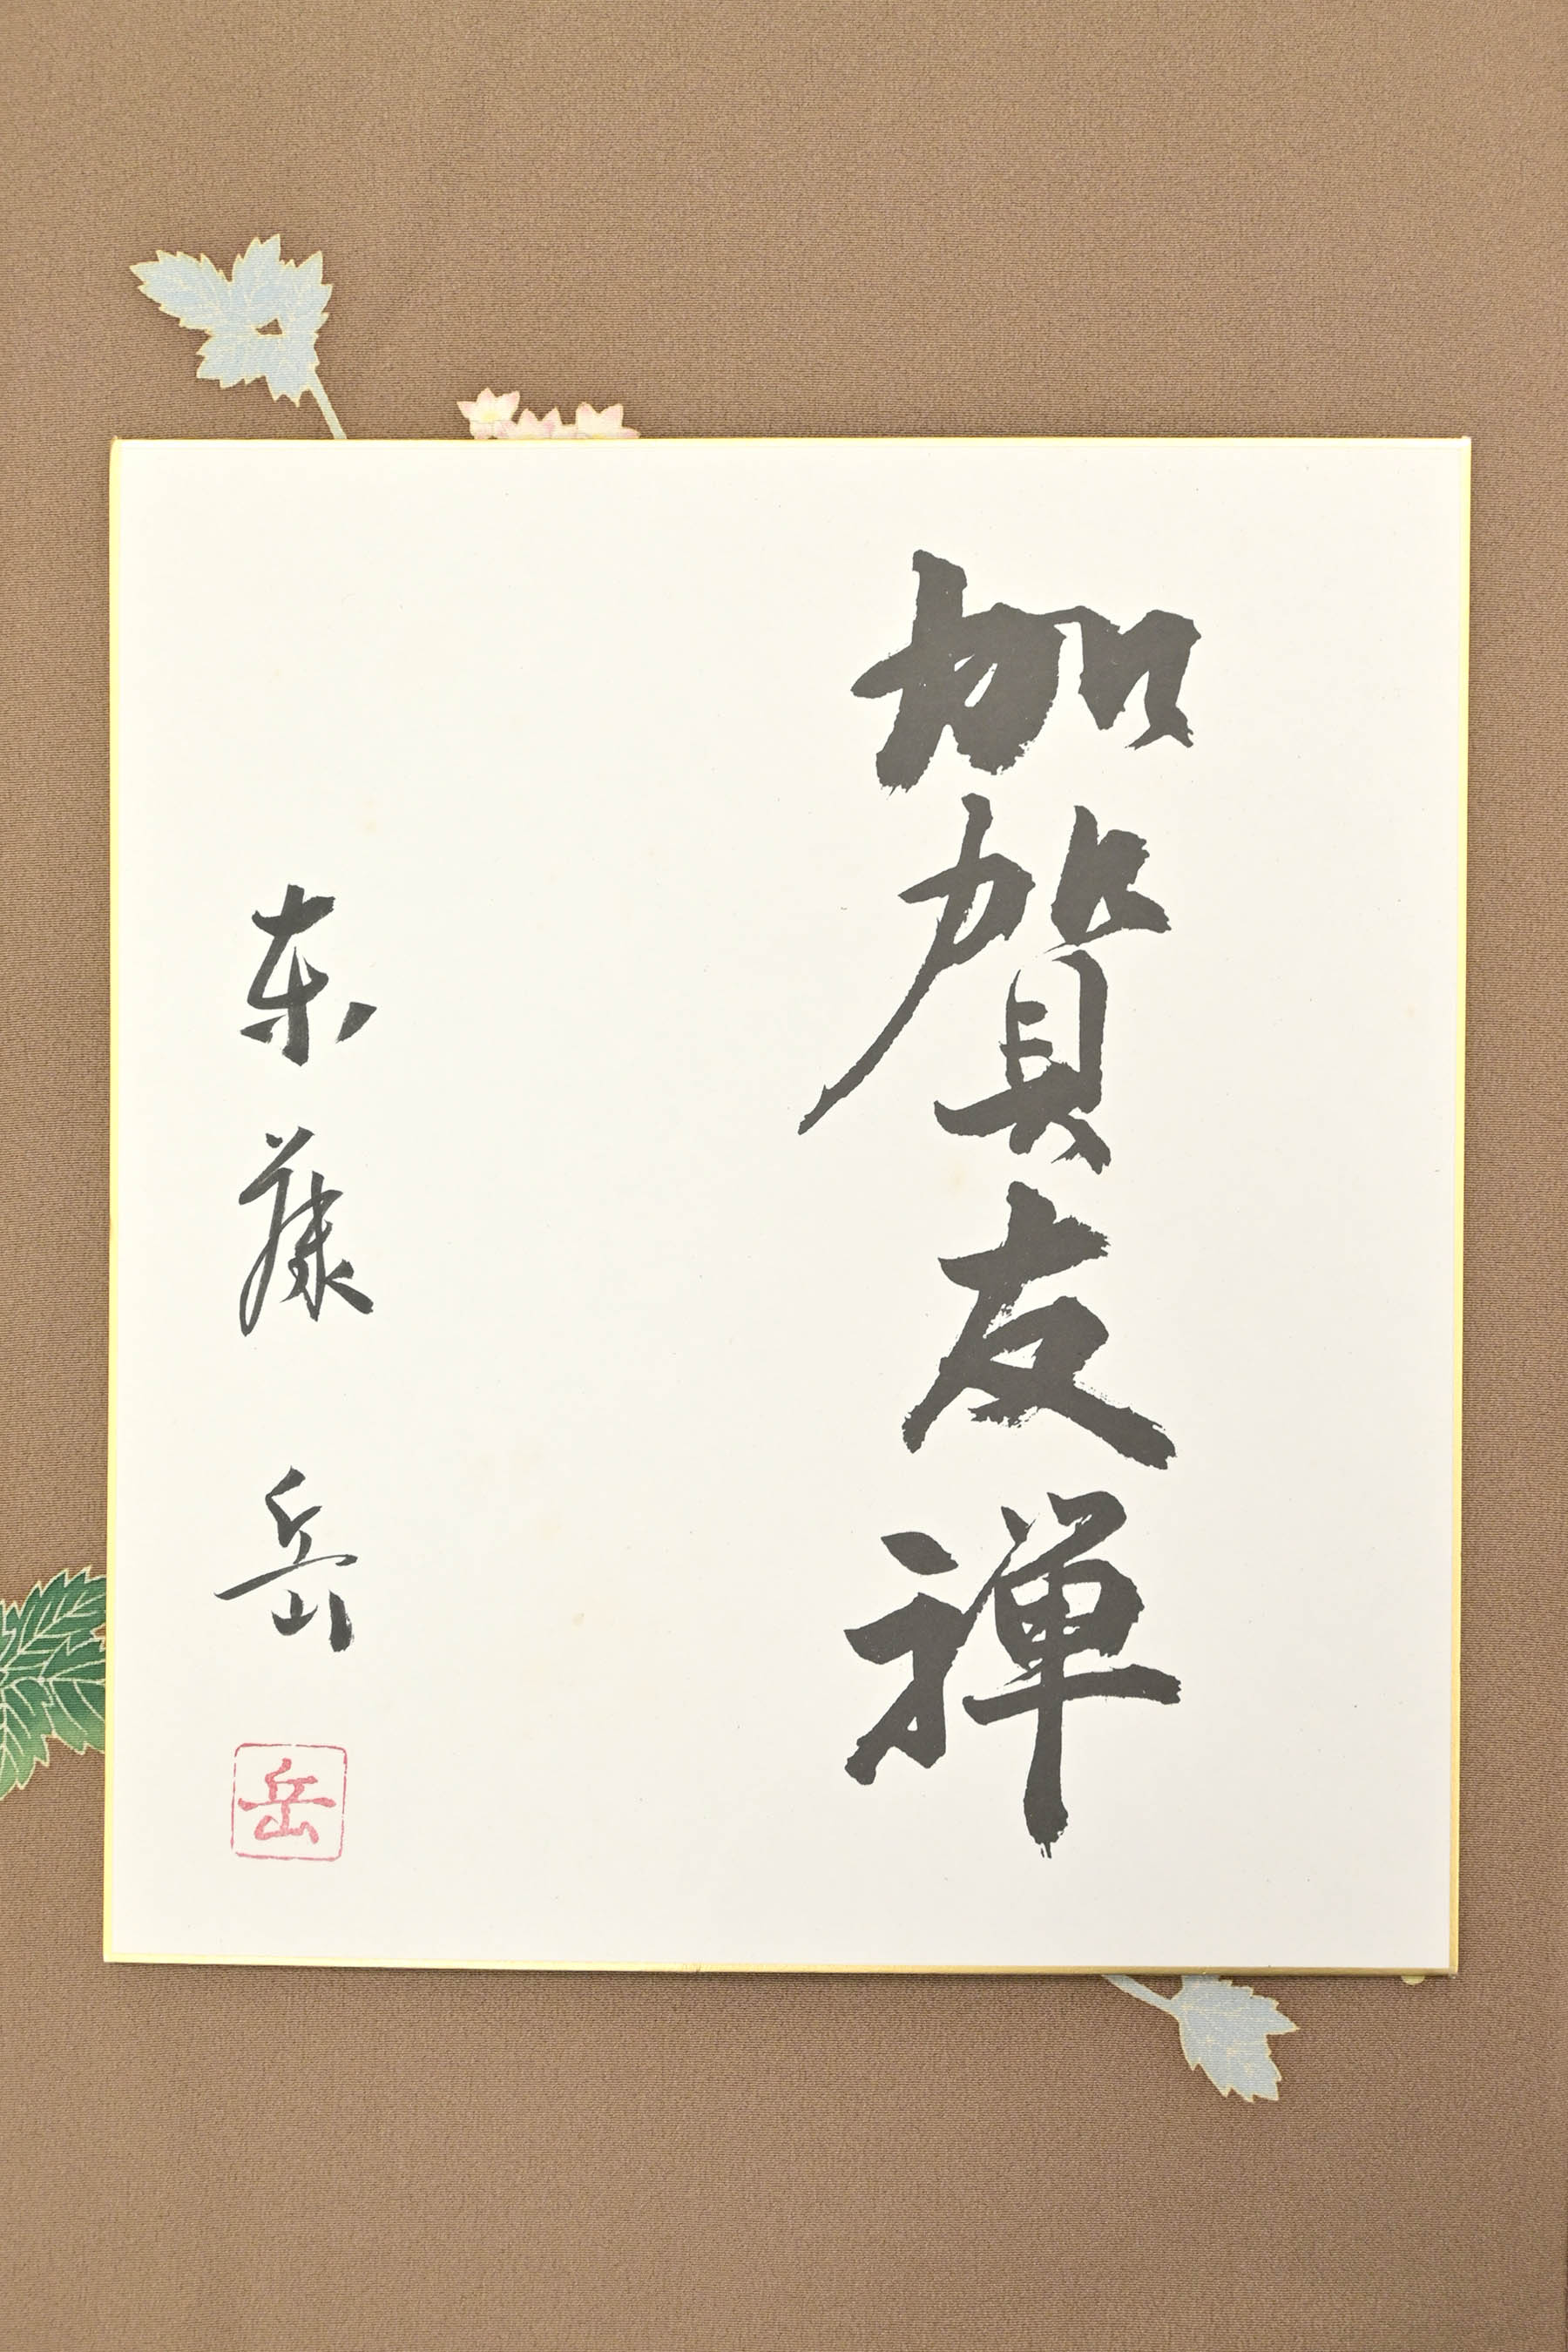 加賀友禅
東藤岳
岳